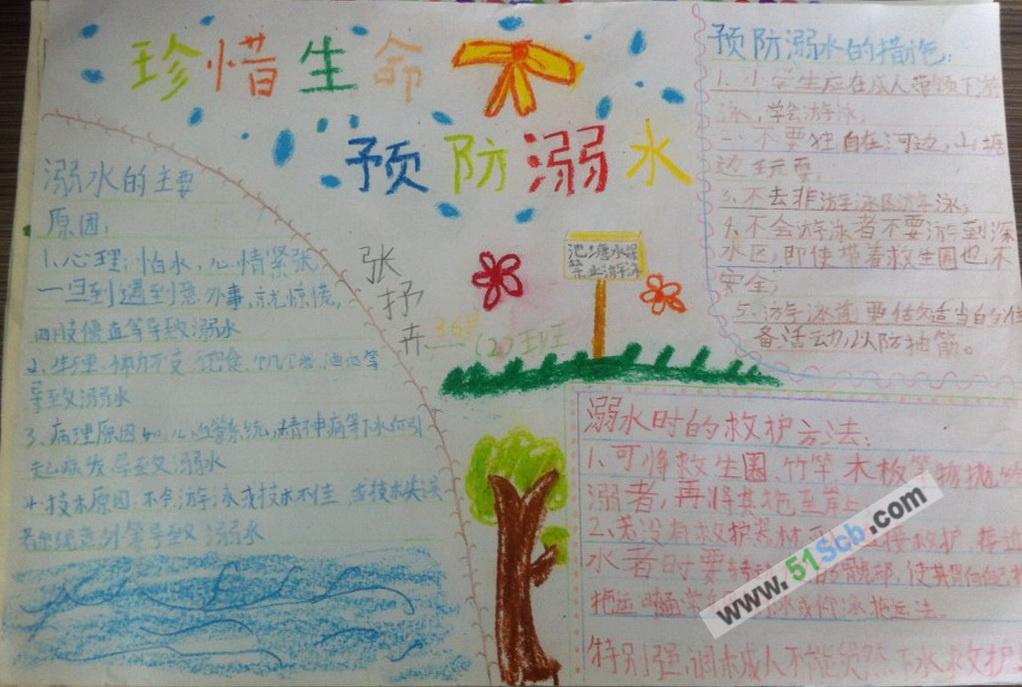 珍惜生命
预防溺水
溺水的主要
原因:
1、心理:怕水,心情紧张,
一旦到遇到意外事,就惊慌,
四肢僵直等导致溺水
2、生理:体力不支 饱食
导致溺水
3、病理原因如心血管系统
起疾发导致溺水
4、技术原因:不会游泳或技术不佳 或技术失误
等导致溺水
张
抒
卉
(2)班
池塘水深
禁止游泳
预防溺水的措施:
1、小学生应在成人带领下游
泳,学会游泳;
二、不要独自在河边,山塘
边玩耍;
3、不去非游泳区游泳;
4、不会游泳者不要游到深
水区,即使带着救生圈也不
安全;
5、游泳前要做适当的准
备活动,以防抽筋。
溺水时的救护方法:
1、可将救生圈、竹竿、木板等物抛给
溺者,再将其拖至岸上
2、若没有救护器材 接救护 接近
水者时要转动 的髋部,使其背向自己
拖运 通常 泳或仰泳拖运法。
特别强调未成人不能贸然下水救护
www.51Scb.com